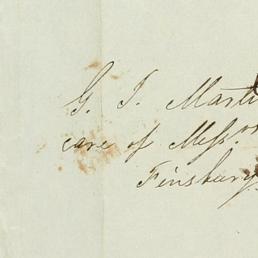 G. J. Marti
care of Messrs
Finsbury